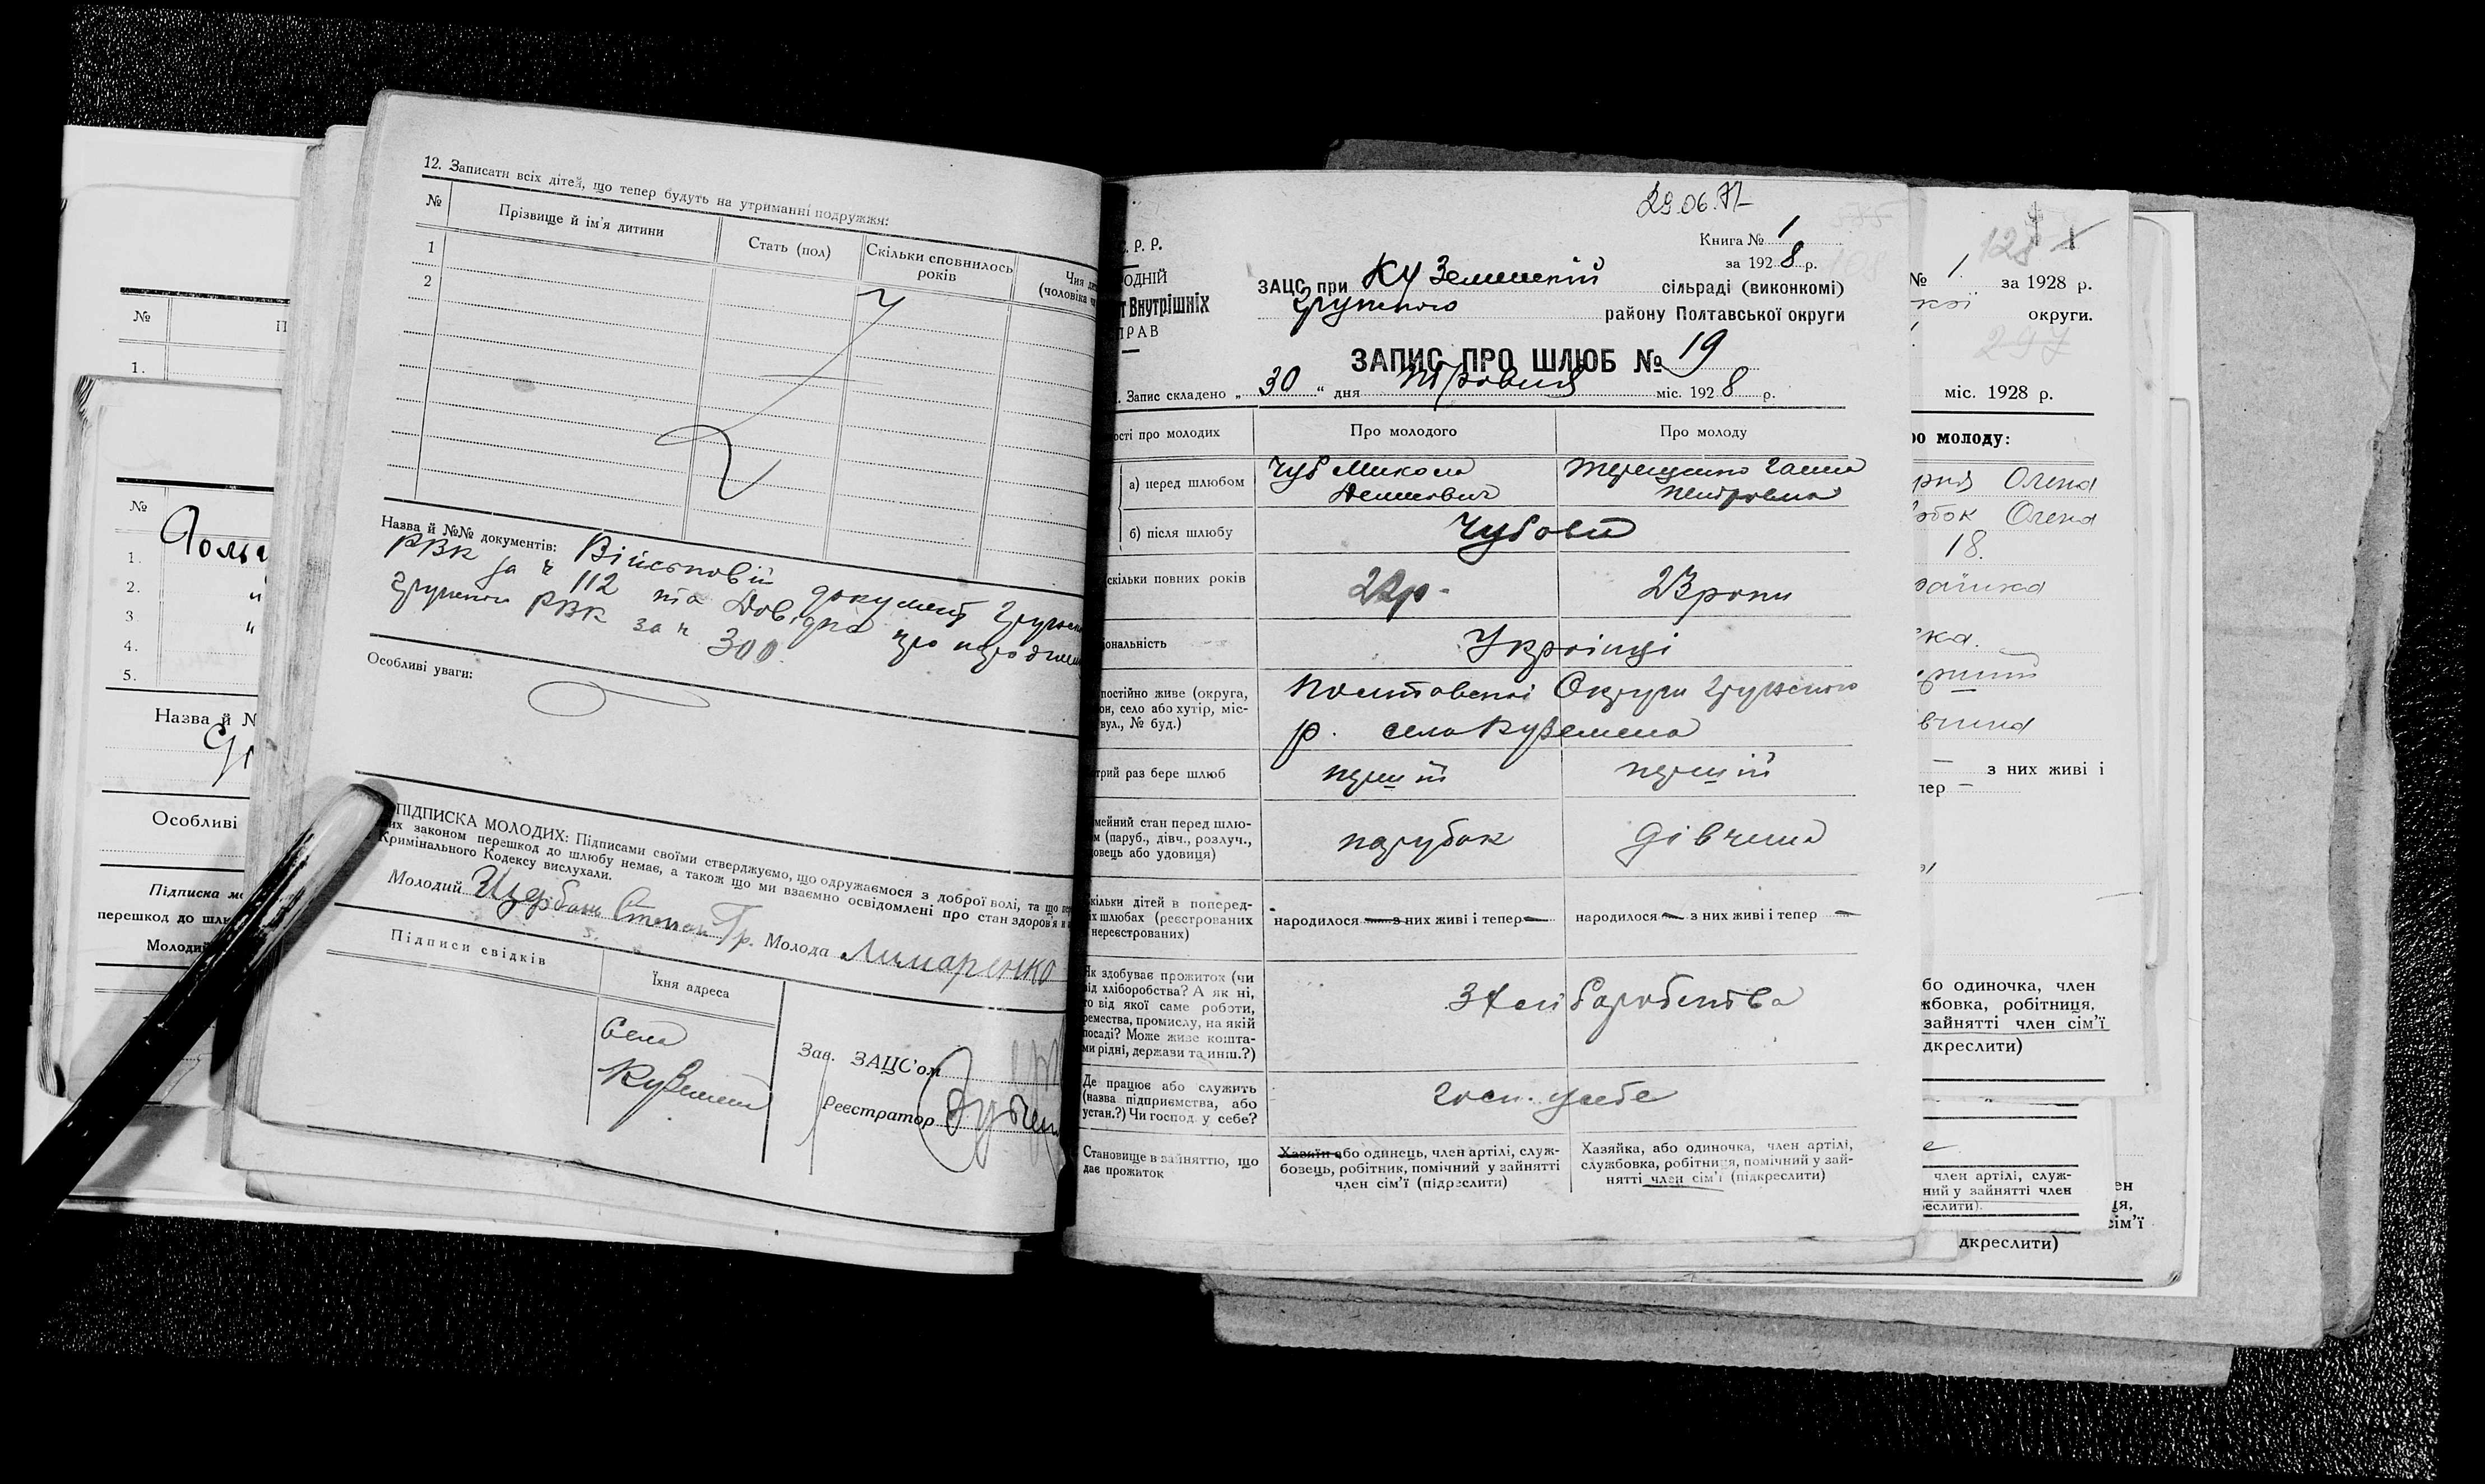 12. Записати всіх дітей, що тепер будуть на утриманні подружжя:
№ Прізвище й ім'я дитини Стать (пол) Скільки сповнилось років Чия (чоловіка
1
2
Назва й №№ документів: Військовій документ
РВК за ч 112 та Довідка про
РВК за ч 300.
Особливі уваги:
ПІДПИСКА МОЛОДИХ: Підписами своїми стверджуємо, що одружаємося з доброї волі, та що
законом перешкод до шлюбу немає, а також що ми взаємно освідомлені про стан здоров'я
Кримінального Кодексу вислухали.
Молодий Щербань Степан Гр. Молода Лимаренко
Підписи свідків Їхня адреса
Села
Куземени
Зав. ЗАЦС'ом
Реєстратор
№
1.
№
1. "
2. "
3
4.
5.
Назва й №
Особливі
Підписка
перешкод до
Молодий
29.06.71
Р. Р.
Книга № 1
за 1928 р.
ОДНІЙ
Внутрішніх
ПРАВ
ЗАЦС при Куземенкій сільраді (виконкомі)
Грунского району Полтавської округи
ЗАПИС ПРО ШЛЮБ № 19
Запис складено „ 30 " дня Травня міс. 1928 р.
ості про молодих Про молодого Про молоду
а) перед шлюбом Чуб Микола Терещенко Ганна
Демкович Петровна
б) після шлюбу Чубови
скільки повних років 22р. 23 роки
ональність Українці
постійно живе (округа, Полтавської Округи Грунского
он, село або хутір, міс- р. села Куземена
вул., № буд.)
трий раз бере шлюб перший перший
мейний стан перед шлю- парубок дівчина
м (паруб., дівч., розлуч.,
овець або удовиця)
кільки дітей в поперед-
іх шлюбах (реєстрованих народилося — з них живі і тепер — народилося — з них живі і тепер —
нереєстрованих)
Як здобуває прожиток (чи
від хліборобства? А як ні, З хліборобства
то від якої саме роботи,
ремества, промислу, на якій
посаді? Може живе кошта-
ми рідні, держави та инш.?)
Де працює або служить
(назва підприємства, або госп. у себе
устан.?) Чи господ. у себе?
Становище в зайняттю, що
дає прожиток
Хазяїн або одинець, член артілі, служ-
бовець, робітник, помічний у зайнятті
член сім'ї (підреслити)
Хазяйка, або одиночка, член артілі,
службовка, робітниця, помічний у зай-
нятті член сім'ї (підкреслити)
128
№ 1. за 1928 р.
округи.
297
міс. 1928 р.
ро молоду:
Олена
Олена
18.
з них живі і
пер —
бо одиночка, член
жбовка, робітниця,
зайнятті член сім'ї
дкреслити)
член артілі, служ-
ний у зайнятті член
еслити).
ен
ця,
сім'ї
дкреслити)